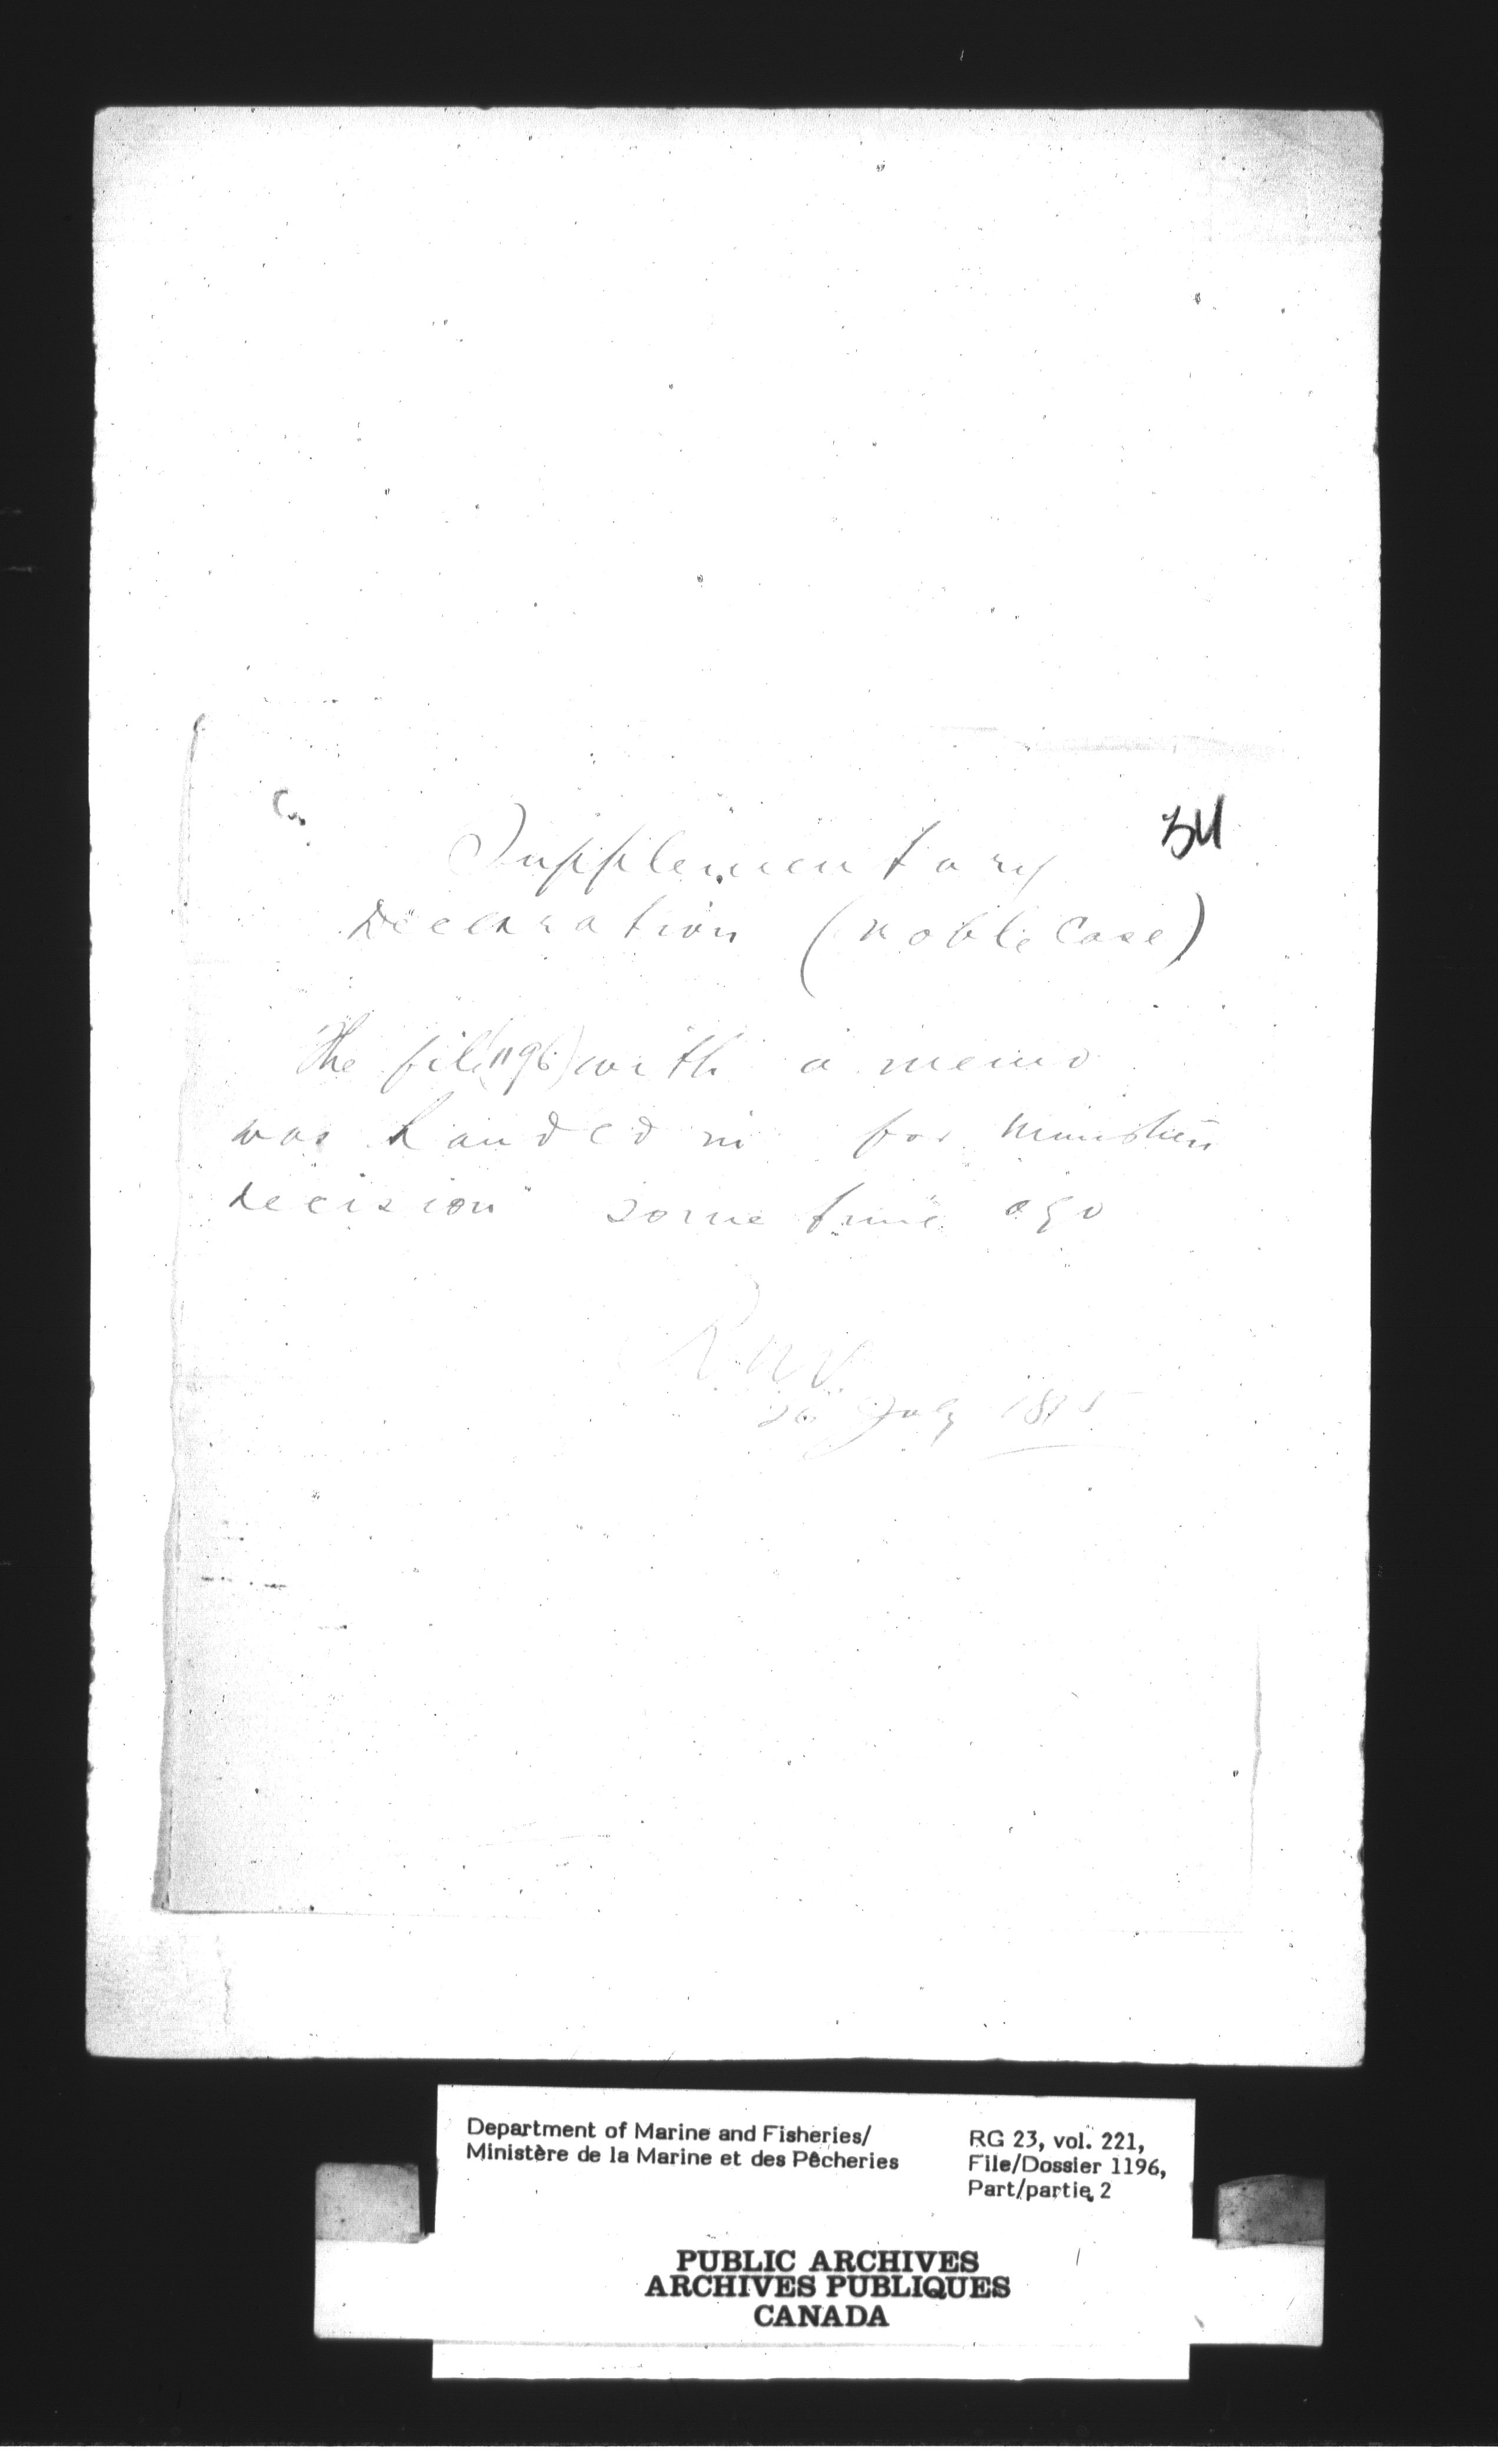 34
Supplementary
Declaration (Noble Case)
The file (1196) with a memo
was handed in for Minister's
decision some time ago
R.N.V.
26 July 1895
Department of Marine and Fisheries/
Ministère de la Marine et des Pêcheries
RG 23, vol. 221,
File/Dossier 1196,
Part/partie 2
PUBLIC ARCHIVES
ARCHIVES PUBLIQUES
CANADA